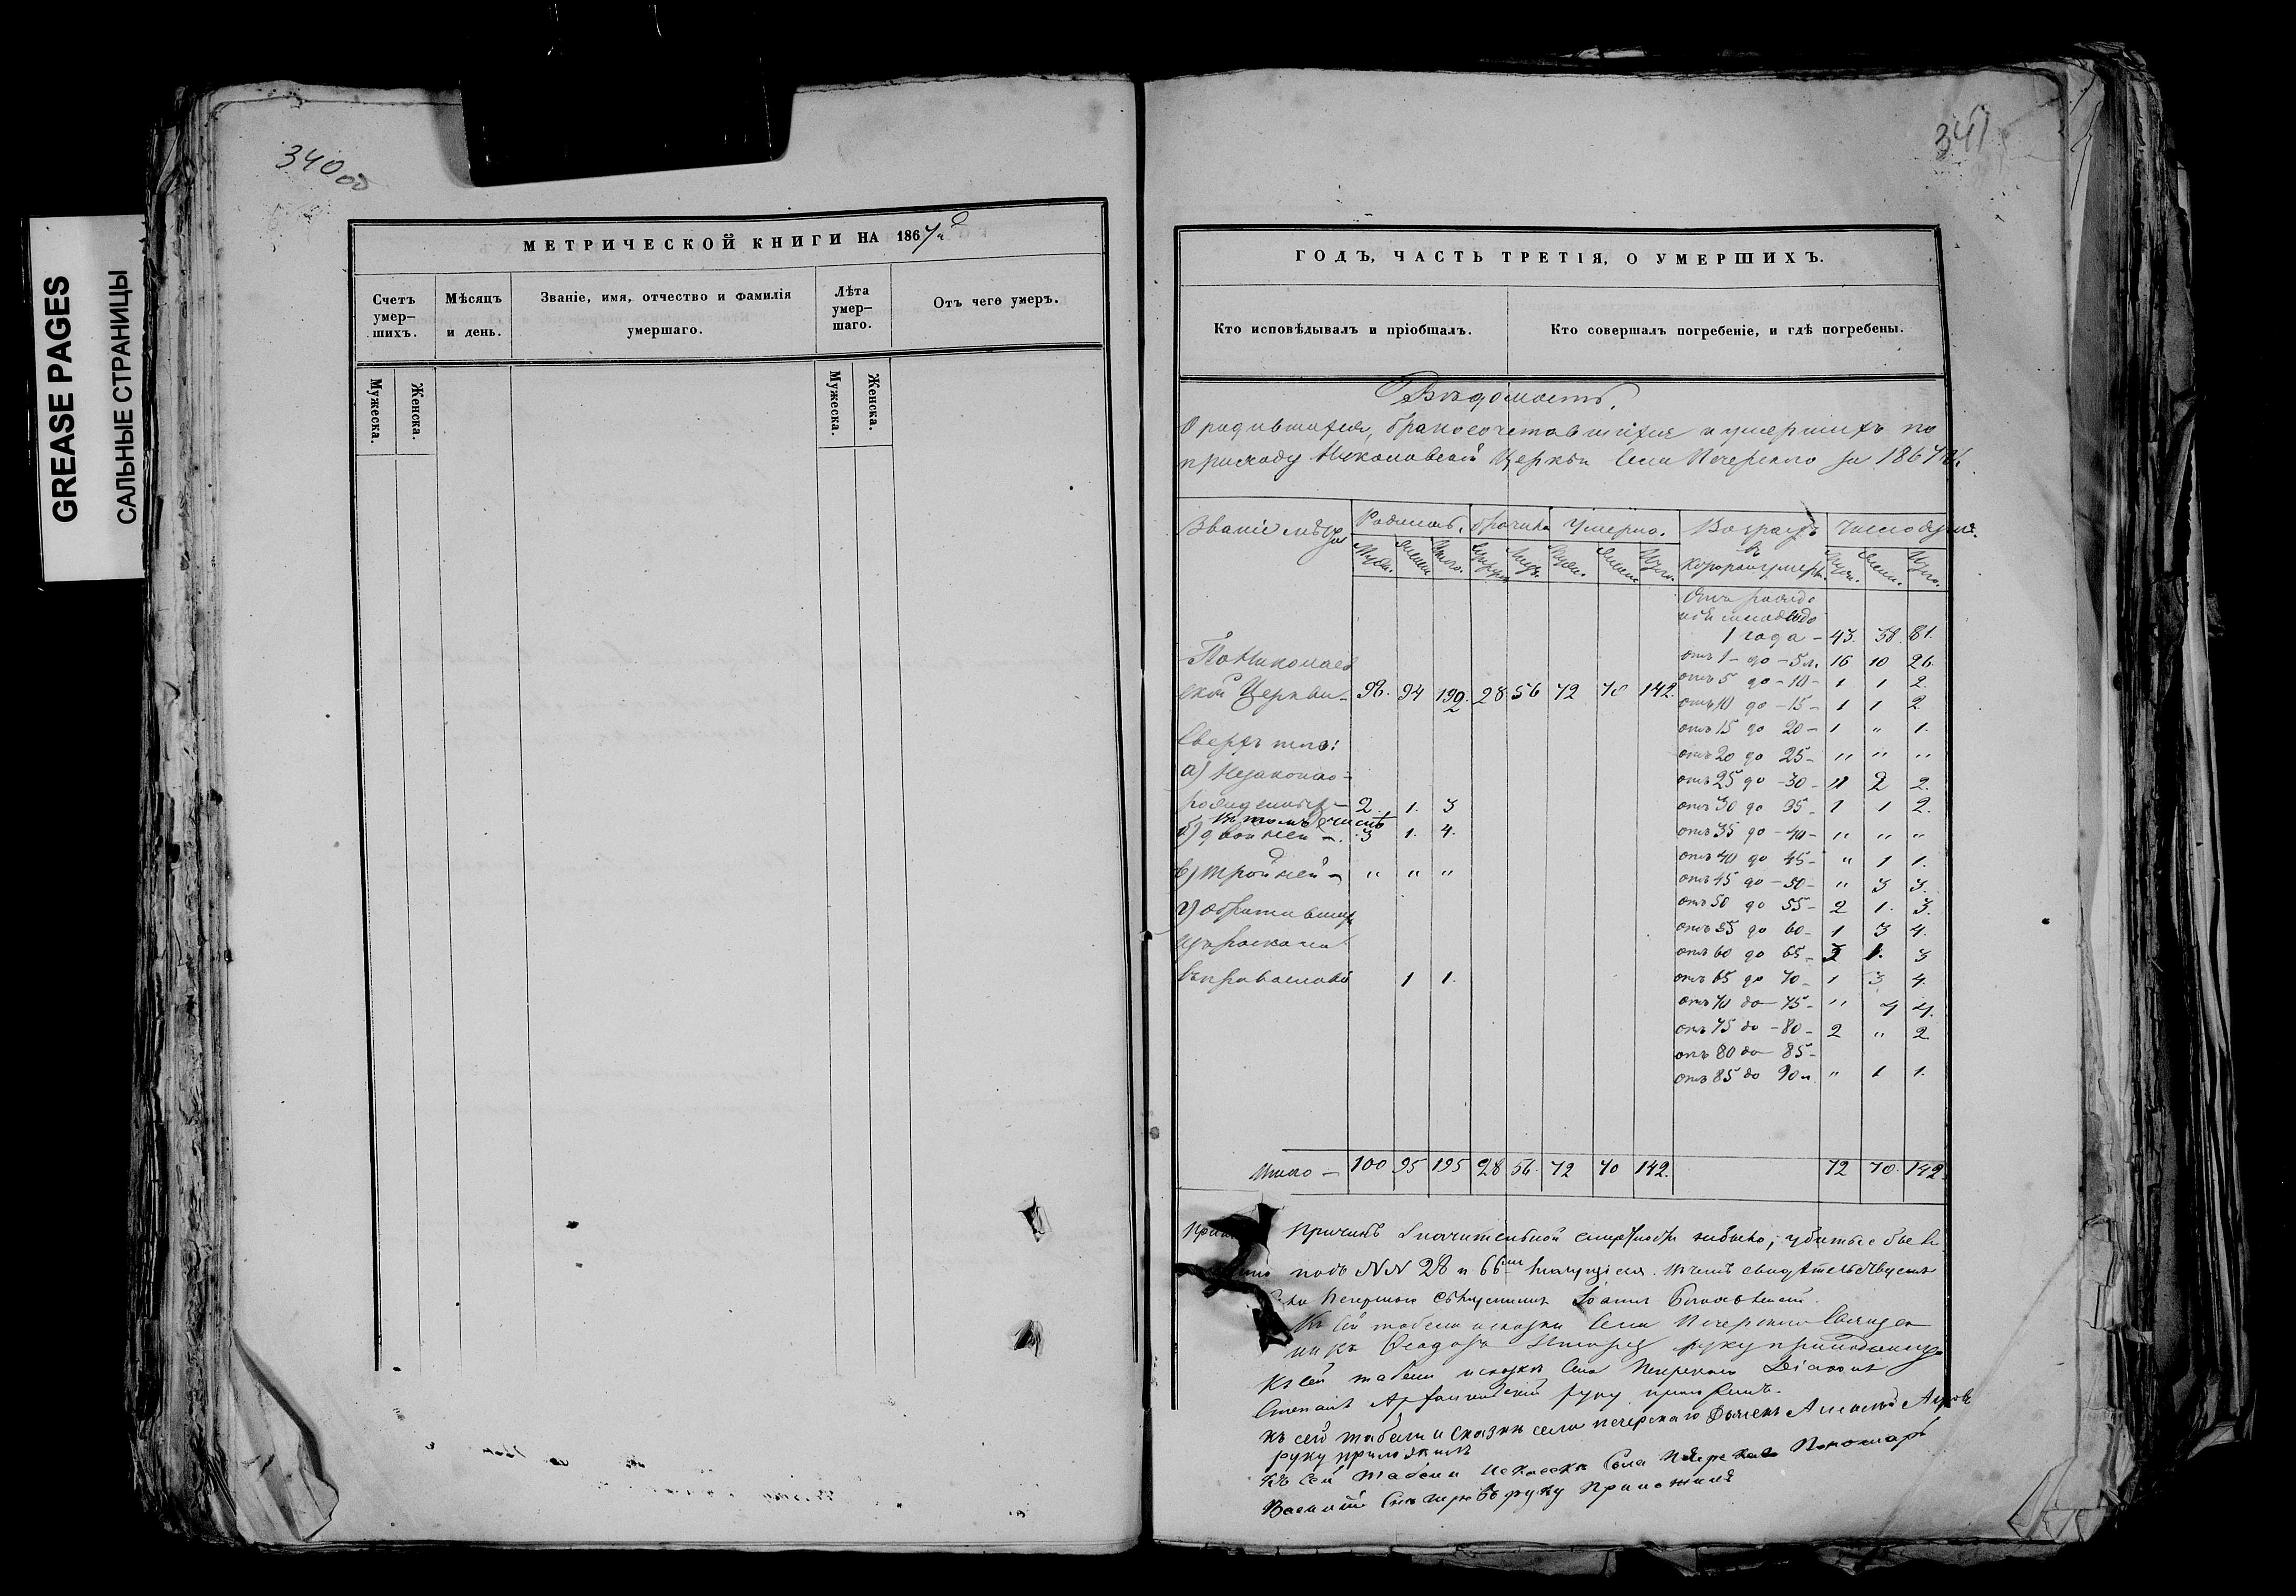 340 об
GREASE PAGES
САЛЬНЫЕ СТРАНИЦЫ
МЕТРИЧЕСКОЙ КНИГИ НА 1867й
Счетъ умер-шихъ.
Мѣсяцъ и день.
Званіе, имя, отчество и фамилія умершаго.
Лѣта умер-шаго.
Отъ чего умеръ.
Мужеска.
Женска.
Мужеска.
Женска.
341
ГОДЪ, ЧАСТЬ ТРЕТІЯ, О УМЕРШИХЪ.
Кто исповѣдывалъ и пріобщалъ.
Кто совершалъ погребеніе, и гдѣ погребены.
Вѣдомость,
О родившихся, бракосочетавшихся и умершихъ по
приходу Николаевской Церкви Села Печерскаго за 1867й г.
Родилось. Умерло. Возрастъ Число душъ.
Муж. Женск. Итого. Муж. Женск. Итого. въ которомъ умерли. Муж. Женск. Итого.
Отъ рожде
нія младен до
1 года – 43. 38. 81.
отъ 1 – до – 5 л. 16 10 26.
По Николаев
ской Церкви – 98. 94 192. 28 56 72 70 142.
отъ 5 до – 10 – 1 1 2.
отъ 10 до – 15 – 1 1 2.
отъ 15 до 20 – 1 " 1.
Сверхъ того:
отъ 20 до 25 – " " "
а) Незаконно-
отъ 25 до – 30 – " 2 2.
рожденныхъ – 2. 1. 3
отъ 30 до 35 – 1 1 2.
въ томъ числѣ
б) двойней – 3 1. 4.
отъ 35 до – 40 – " " "
отъ 40 до 45 – " 1 1.
в) тройней – " " "
отъ 45 до – 50 – " 3 3.
г) обратившихъ
отъ 50 до 55 – 2 1. 3.
изъ раскола
отъ 55 до 60 – 1 3 4.
отъ 60 до 65 – 2 1. 3
въ православіе 1 1.
отъ 65 до 70 – 1 3 4.
отъ 70 до – 75 – " 4 4.
отъ 75 до – 80 – 2 " 2.
отъ 80 до – 85 –
отъ 85 до 90 л. " 1 1.
Итого – 100 95 195 28 56. 72 70 142. 72 70. 142.
Причинъ значительной смертности небыло; убитые
подъ NN 28 и 66 въ чемъ свидѣтельствуетъ
Печерскаго Священникъ Іоаннъ
Къ сей табели и сказки Села Печерскаго Священ
никъ Ѳеодоръ руку приложилъ
Къ сей табели и сказки Села Печерскаго Діаконъ
Степанъ руку приложилъ.
къ сей табели и сказки села печерскаго Дьячекъ
руку приложилъ
къ сей табели и сказки села Печерскаго Пономарь
Василій руку приложилъ